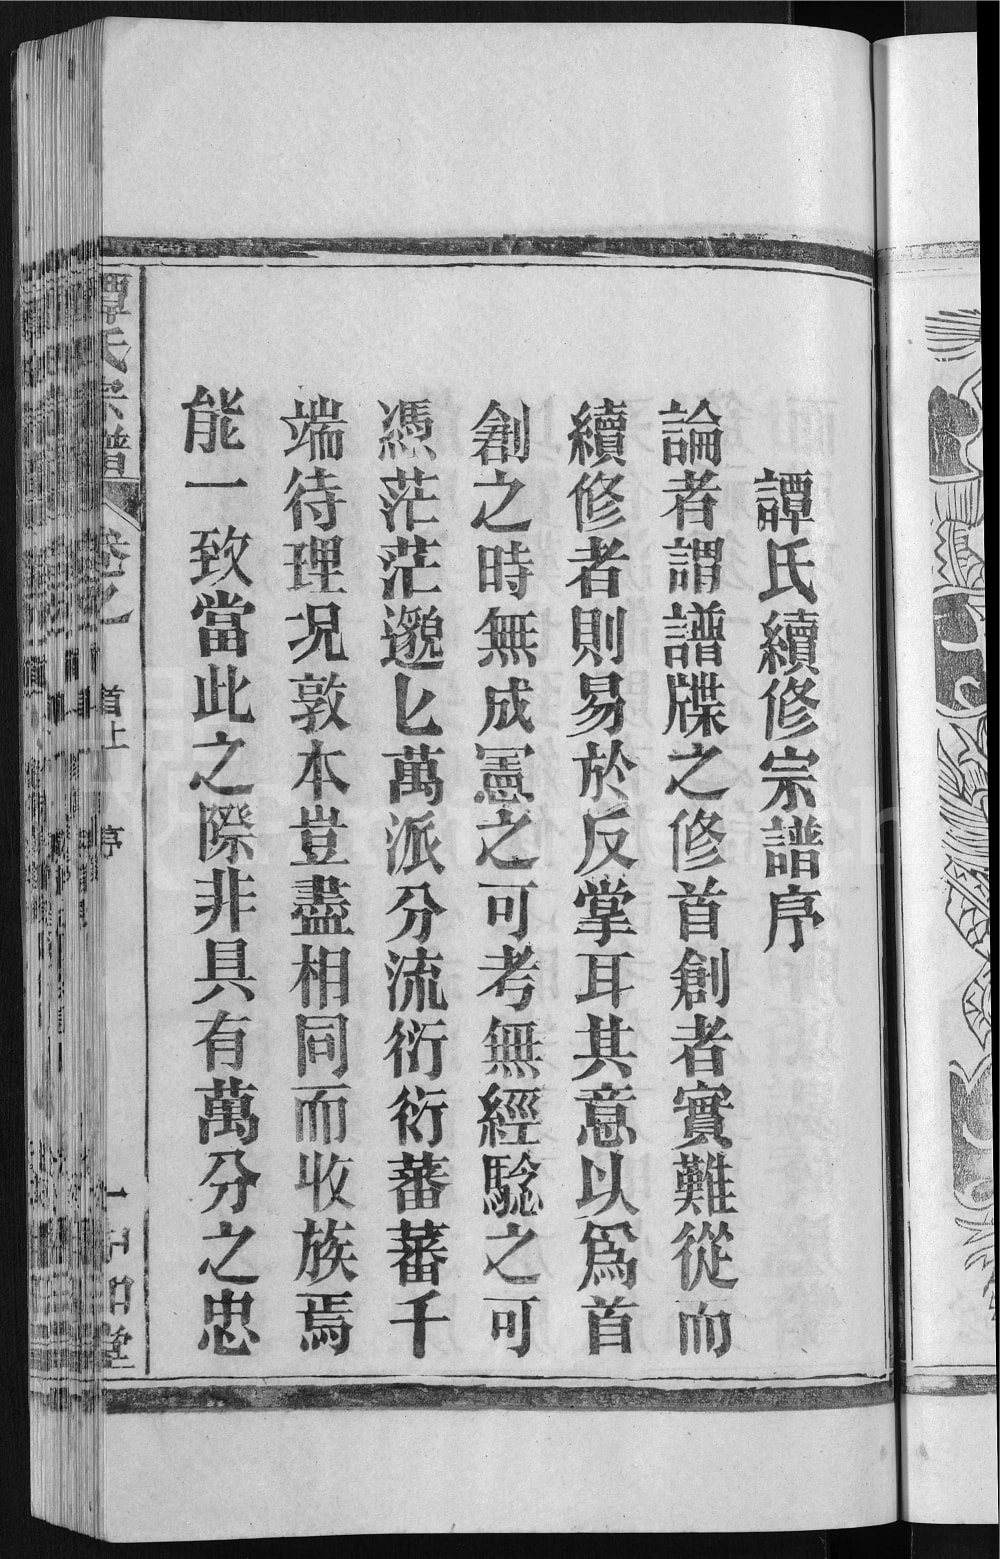 譚氏續修宗譜序
論者謂譜牒之修首創者實難從而
續修者則易於反掌耳其意以爲首
創之時無成憲之可考無經騐之可
憑茫茫邈邈匕萬派分流衍衍蕃蕃千
端待理况敦本豈盡相同而收族焉
能一致當此之際非具有萬分之忠
譚氏宗譜
卷之
首上
序
一
堂